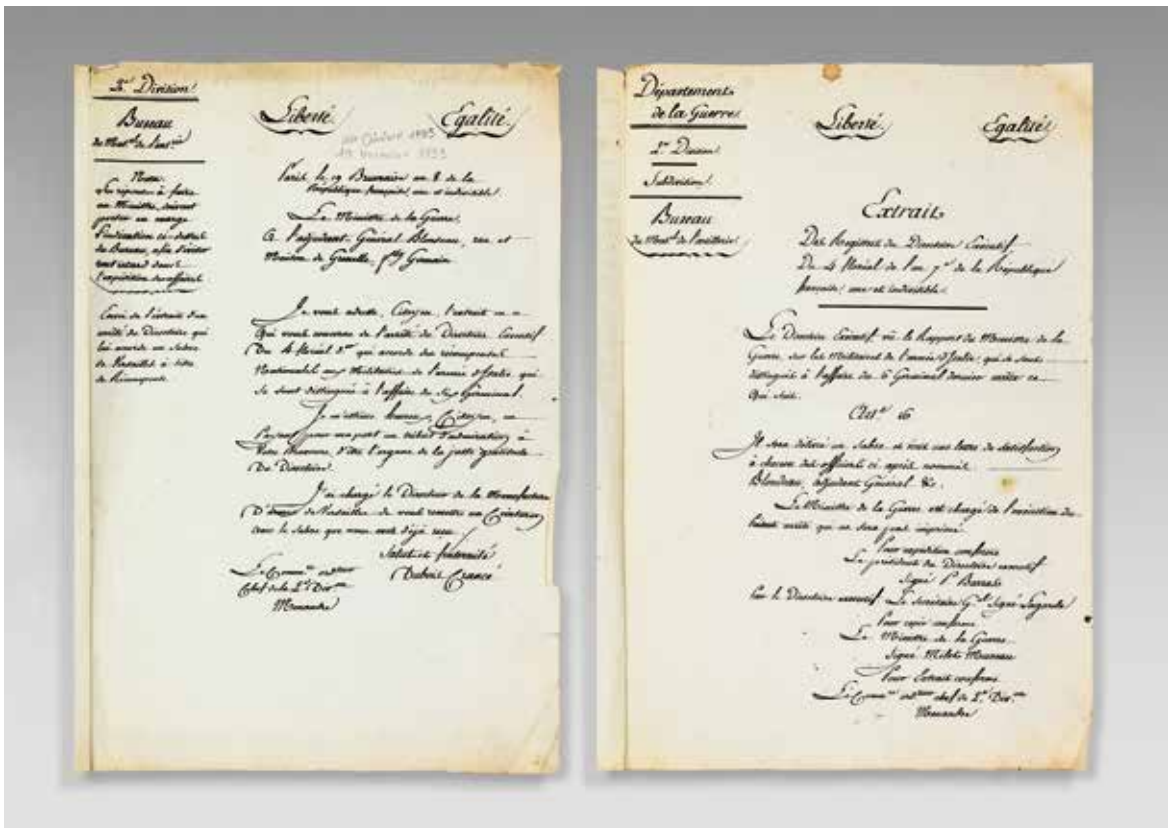 2.e Division
Bureau
du Mat.el de l'art.rie
Nota.
Les réponses à faire
au Ministre, doivent
porter en marge
l'indication ci-dessus
du Bureau, afin d'éviter
tout retard dans
l'expédition des affaires.
Envoi de l'extrait d'un
arrêté du Directoire qui
lui accorde un Sabre
de Versailles à titre
de Récompense.
Liberté Egalité
Paris, le 19 Brumaire an 8 de la
République française, une et indivisible.
Le Ministre de la Guerre,
A l'adjudant-Général Blondeau, rue et
Maison de Grenelle, f.bg Germain
Je vous adresse, Citoyen, l'extrait en ce
Qui vous concerne de l'arrêté du Directoire Exécutif
Du 4 floréal d.er qui accorde des récompenses
Nationales aux Militaires de l'armée d'Italie qui
se sont distingués à l'affaire du six Germinal.
Je m'estime heureux, Citoyen, en
Payant pour ma part un tribut d'admiration à
Votre Bravoure, d'être l'organe de la juste gratitude
Du Directoire.
J'ai chargé le Directeur de la Manufacture
D'armes de Versailles de vous remettre un Ceinturon
avec le sabre que vous avez déjà reçu.
Salut et fraternité
Dubois Crancé
Le Comm.re ord.teur
Chef de la 2.e Div.on
Département
de la Guerre
2.e Division
Subdivision
Bureau
du Mat.el de l'artillerie
Liberté Egalité
Extrait
Des Registres du Directoire Exécutif
Du 4 floréal de l'an 7.e de la République
française, une et indivisible.
Le Directoire Exécutif vû le Rapport du Ministre de la
Guerre sur les Militaires de l'armée d'Italie qui se sont
distingués à l'affaire du 6 Germinal dernier arrête ce
Qui suit.
Art.e 16
Il sera délivré un sabre et écrit une lettre de satisfaction
à chacun des officiers ci après nommés
Blondeau, adjudant Général &c.
Le Ministre de la Guerre est chargé de l'exécution du
Présent arrêté qui ne sera pas imprimé
Pour expédition conforme
Le président du Directoire exécutif
Signé P. Barras
Par le Directoire exécutif Le Secrétaire G.al Signé Lagarde
Pour copie conforme
Le Ministre de la Guerre
Signé Milet Mureau
Pour Extrait conforme
Le Comm.re ord.teur chef de 2.e Div.on